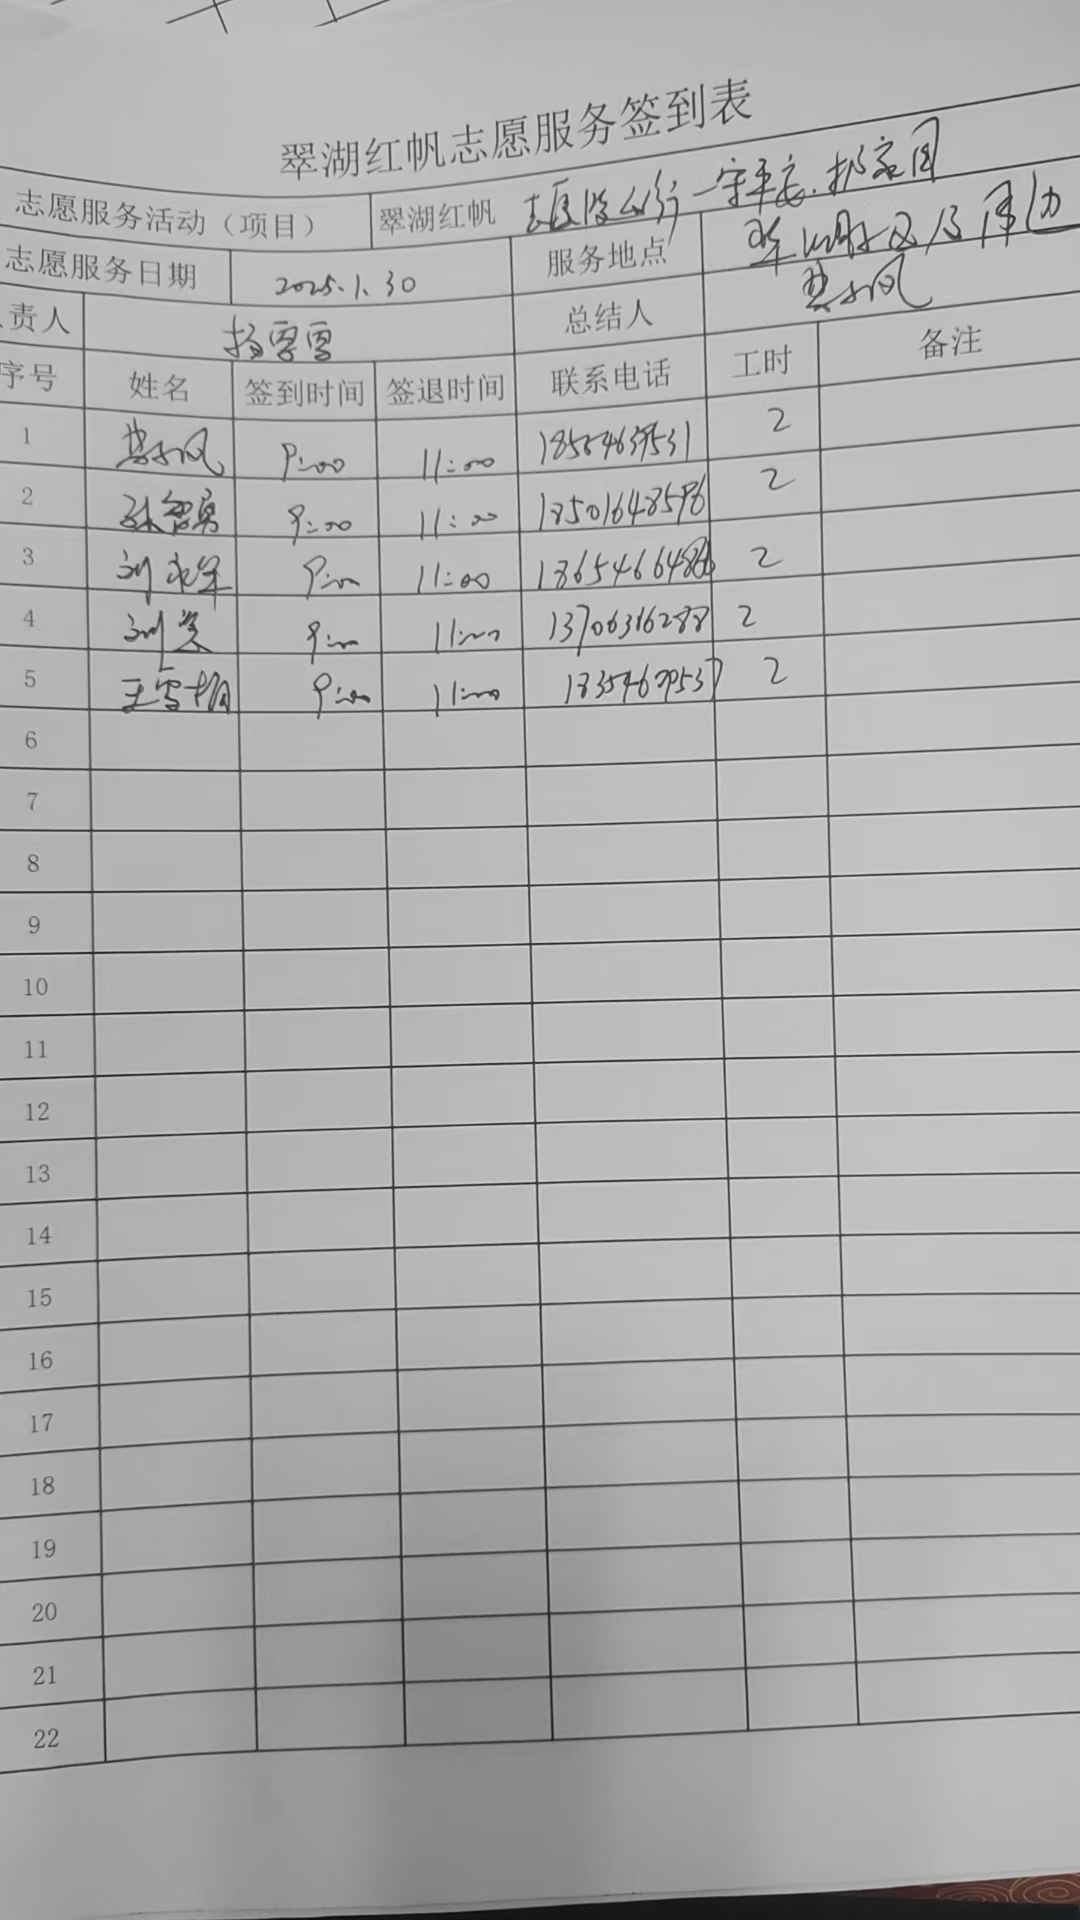 翠湖红帆志愿服务签到表
志愿服务活动（项目） 翠湖红帆 志愿 一守平安.护家园
志愿服务日期 2025.1.30 服务地点 翠湖社区及周边
责人 杨雪雪 总结人
序号 姓名 签到时间 签退时间 联系电话 工时 备注
1 9:00 11:00 2
2 9:00 11:00 18501648596 2
3 刘永军 9:00 11:00 2
4 刘美 9:00 11:00 13706316288 2
5 王雪梅 9:00 11:00 2
6
7
8
9
10
11
12
13
14
15
16
17
18
19
20
21
22